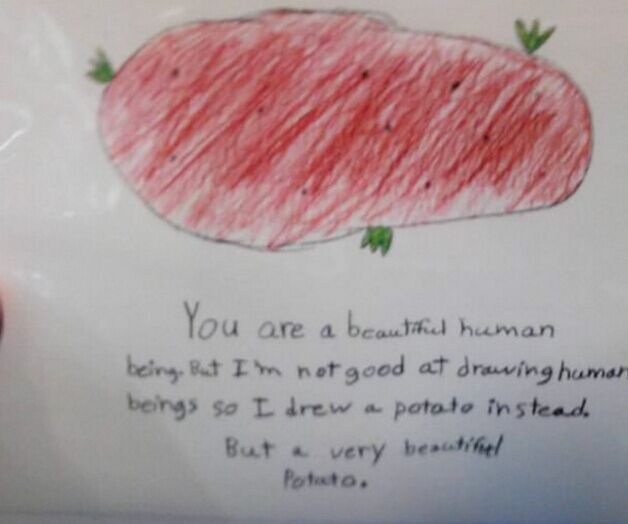 You are a beautiful human
being. But I'm not good at drawing human
beings so I drew a potato instead.
But a very beautiful
Potato.